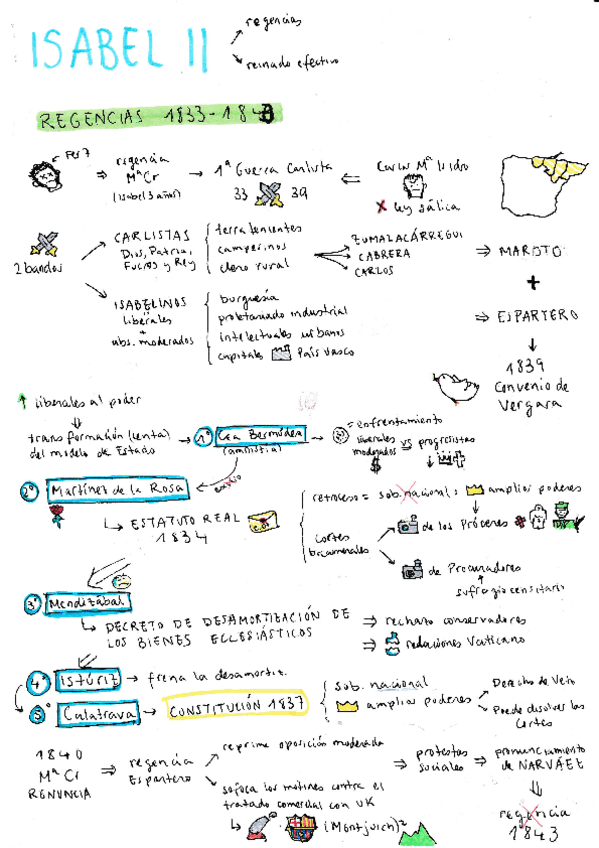 ISABEL II
regencias
reinado efectivo
REGENCIAS 1833-1843
Fer7
regencia
MªCr
(Isabel 3 años)
1ª Guerra Carlista
33 39
Carlos Mª Isidro
ley sálica
2 bandos
CARLISTAS
Dios, Patria,
Fueros y Rey
terratenientes
campesinos
clero rural
ZUMALACÁRREGUI
CABRERA
CARLOS
MAROTO
+
ESPARTERO
1839
Convenio de
Vergara
ISABELINOS
liberales
+
abs. moderados
burguesía
proletariado industrial
intelectuales urbanos
capitales País vasco
liberales al poder
transformación (lenta)
del modelo de Estado
1º Cea Bermúdez
(amnistía)
= enfrentamiento
liberales
moderados vs progresistas
$
exilio
2º Martínez de la Rosa
ESTATUTO REAL
1834
retroceso = sob. nacional; amplios poderes
Cortes
bicamerales
de los Próceres
de Procuradores
sufragio censitario
3º Mendizábal
DECRETO DE DESAMORTIZACIÓN DE
LOS BIENES ECLESIÁSTICOS
rechazo conservadores
relaciones Vaticano
4º Istúriz → frena la desamortiz.
5º Calatrava → CONSTITUCIÓN 1837
sob. nacional
amplios poderes
Derecho de Veto
Puede disolver las
Cortes
1840
MªCr
RENUNCIA
regencia
Espartero
reprime oposición moderada
sofoca los motines contra el
tratado comercial con UK
(Montjuich)²
protestas
sociales
pronunciamiento
de NARVÁEZ
regencia
1843